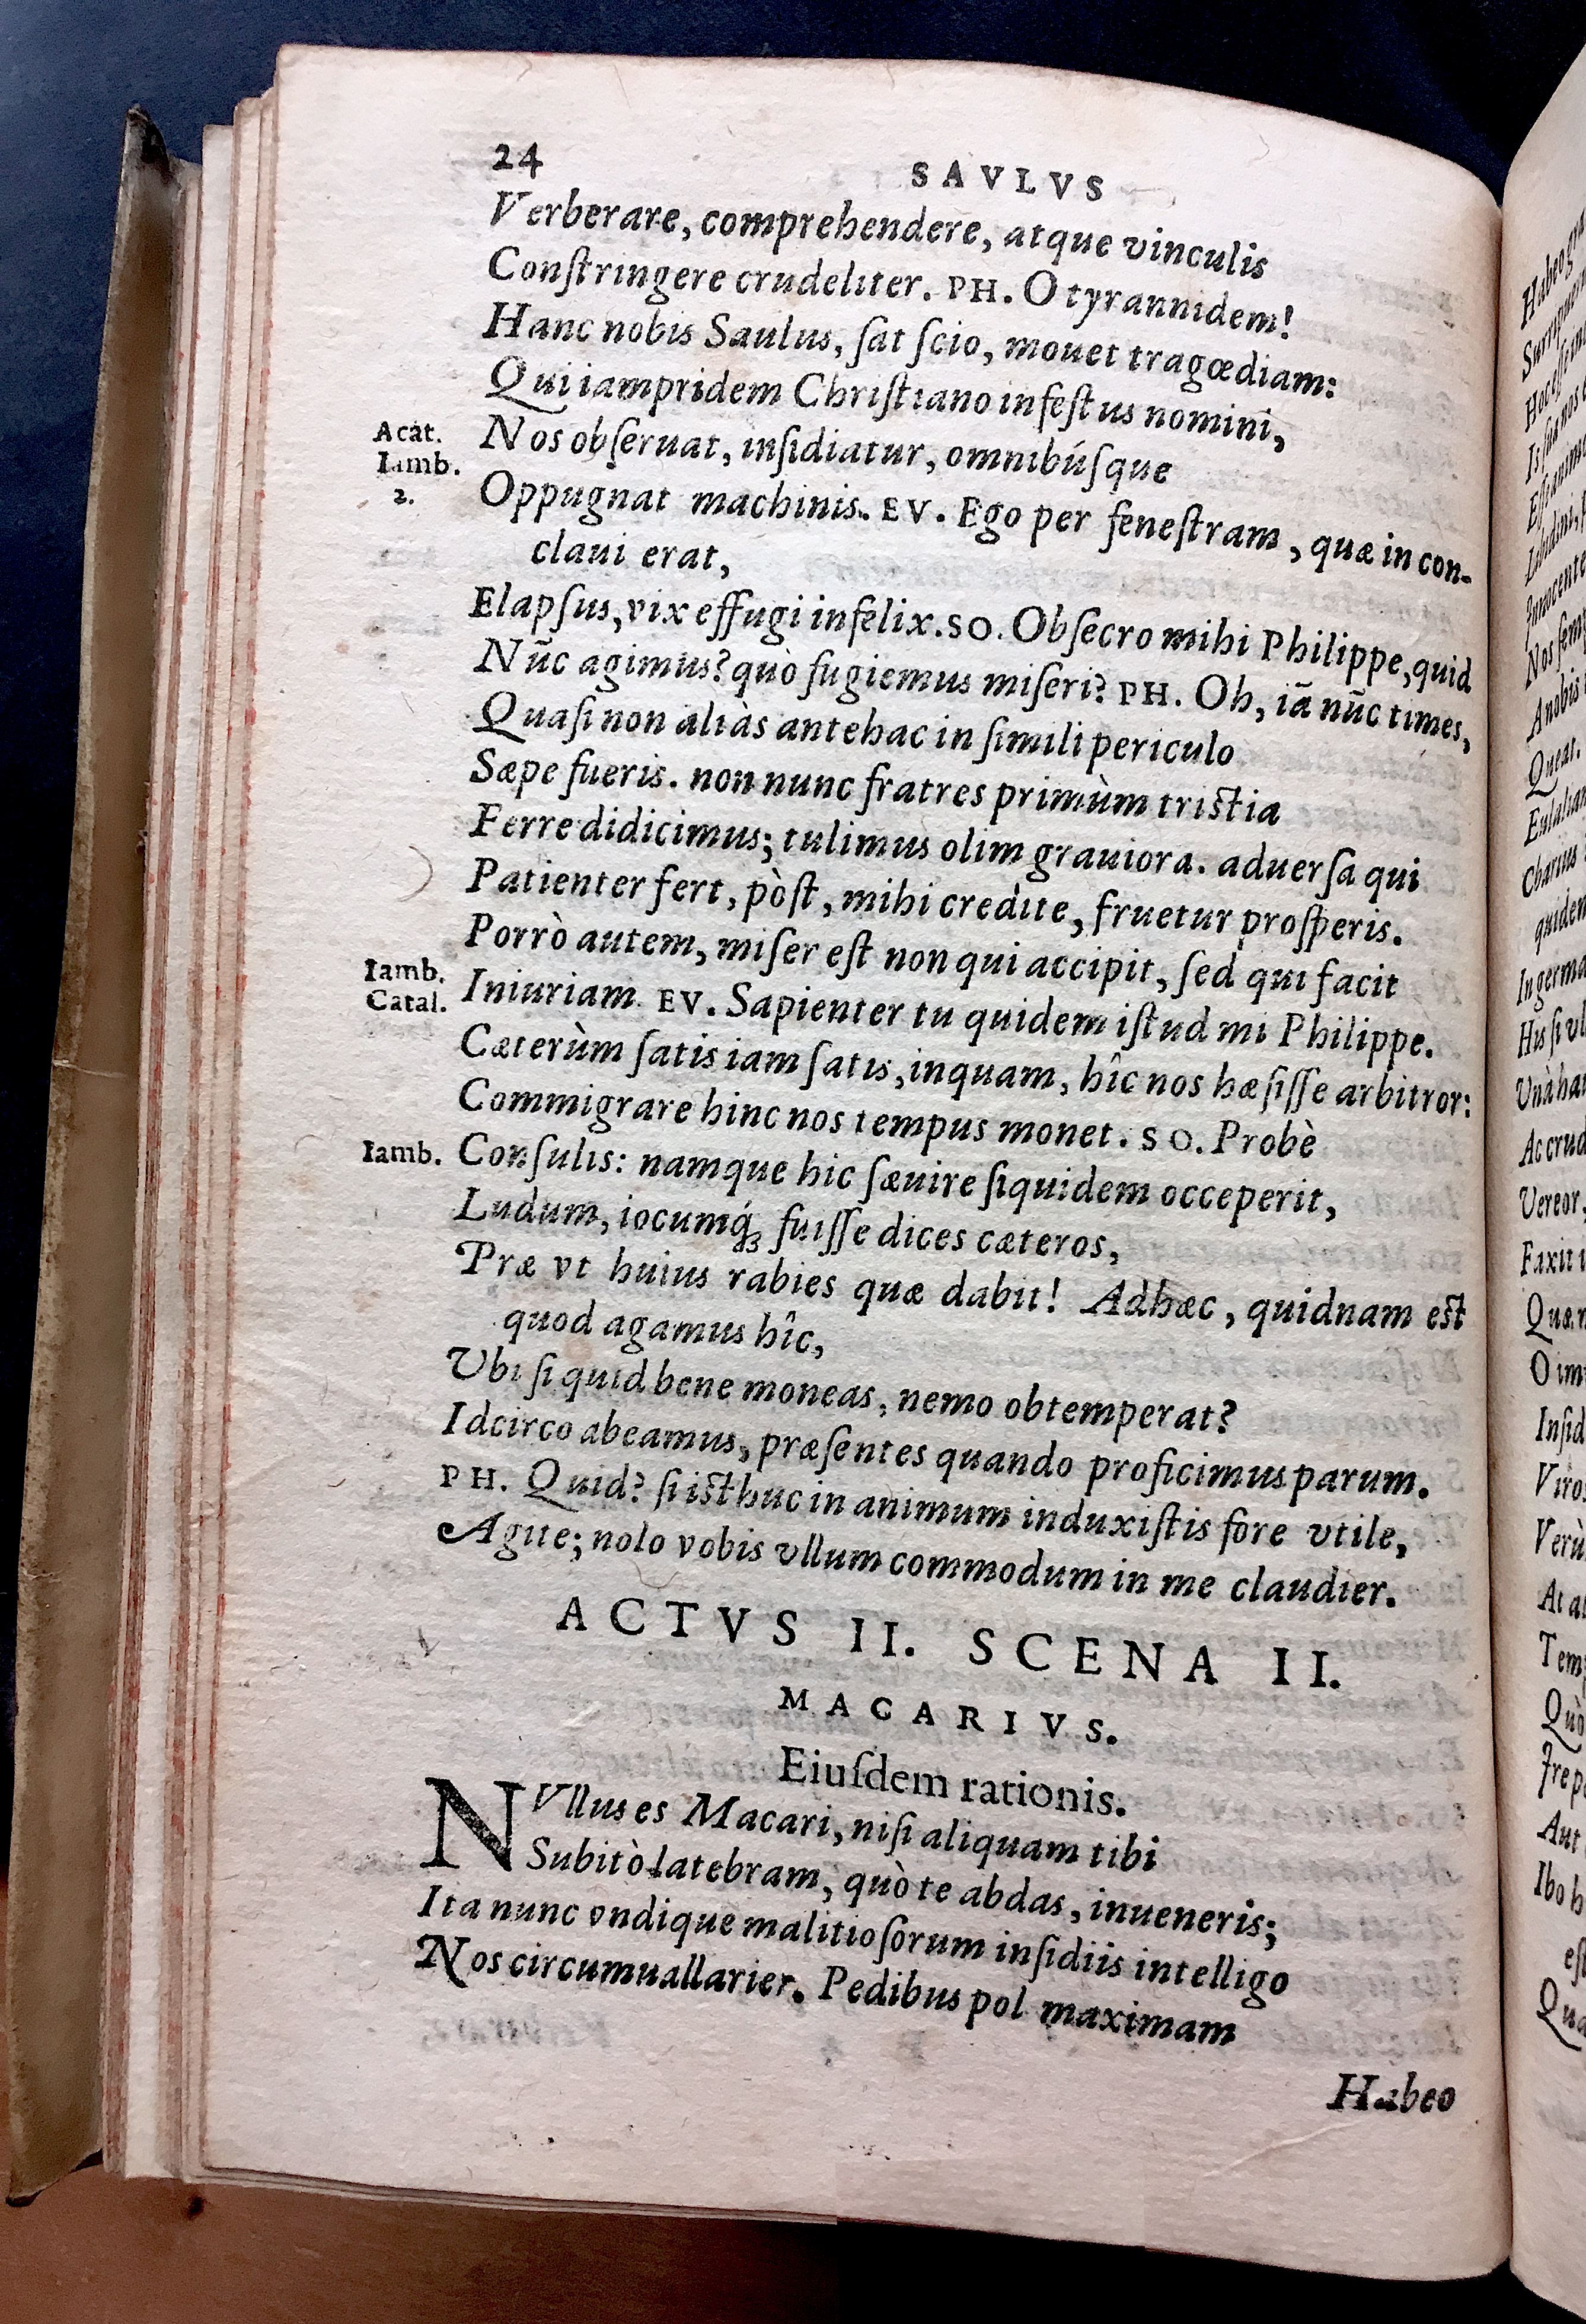 24
SAVLVS
Verberare, comprehendere, atque vinculis
Conſtringere crudeliter. PH. O tyrannidem!
Hanc nobis Saulus, ſat ſcio, mouet tragœdiam:
Qui iampridem Chriſtiano infeſtus nomini,
Acat. Nos obſeruat, inſidiatur, omnibúſque
Iamb.
2. Oppugnat machinis. EV. Ego per feneſtram, quæ in con-
claui erat,
Elapſus, vix effugi infelix. SO. Obſecro mihi Philippe, quid
Nũc agimus? quò fugiemus miſeri? PH. Oh, iã nũc times,
Quaſi non aliàs antehac in ſimili periculo
Sæpe fueris. non nunc fratres primùm triſtia
Ferre didicimus; tulimus olim grauiora. aduerſa qui
Patienter fert, pòſt, mihi credite, fruetur proſperis.
Porrò autem, miſer eſt non qui accipit, ſed qui facit
Iamb.
Catal. Iniuriam. EV. Sapienter tu quidem iſtud mi Philippe.
Cæterùm ſatis iam ſatis, inquam, hîc nos hæſiſſe arbitror:
Commigrare hinc nos tempus monet. SO. Probè
Iamb. Conſulis: namque hic ſæuire ſiquidem occeperit,
Ludum, iocumq́ꝫ fuiſſe dices cæteros,
Præ vt huius rabies quæ dabit! Adhæc, quidnam eſt
quod agamus hîc,
Vbi ſi quid bene moneas, nemo obtemperat?
Idcirco abeamus, præſentes quando proficimus parum.
PH. Quid? ſi iſthuc in animum induxiſtis fore vtile,
Agite; nolo vobis vllum commodum in me claudier.
ACTVS II. SCENA II.
MACARIVS.
Eiuſdem rationis.
NVllus es Macari, niſi aliquam tibi
Subitò latebram, quò te abdas, inueneris;
Ita nunc vndique malitioſorum inſidiis intelligo
Nos circumuallarier. Pedibus pol maximam
Habeo